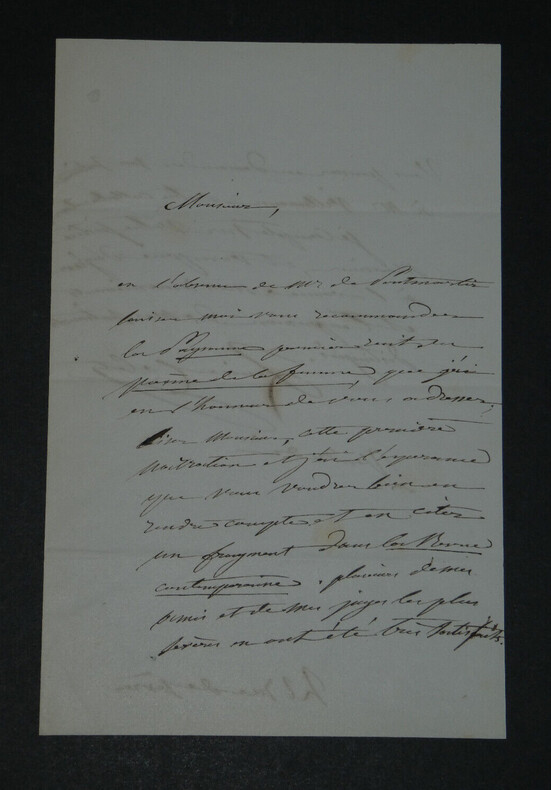 Monsieur,
en l'absence de Mr. de Pontmartin
laissez moi vous recommander
la Paysanne premier récit du
poème de la femme, que j'ai
en l'honneur de vous adresser,
lisez Monsieur, cette première
narration et j'ai l'espérance
que vous voudrez bien en
rendre compte et en citer
un fragment dans la Revue
contemporaine. plusieurs de mes
amis et de mes juges les plus
sévères en ont été très satisfaits.